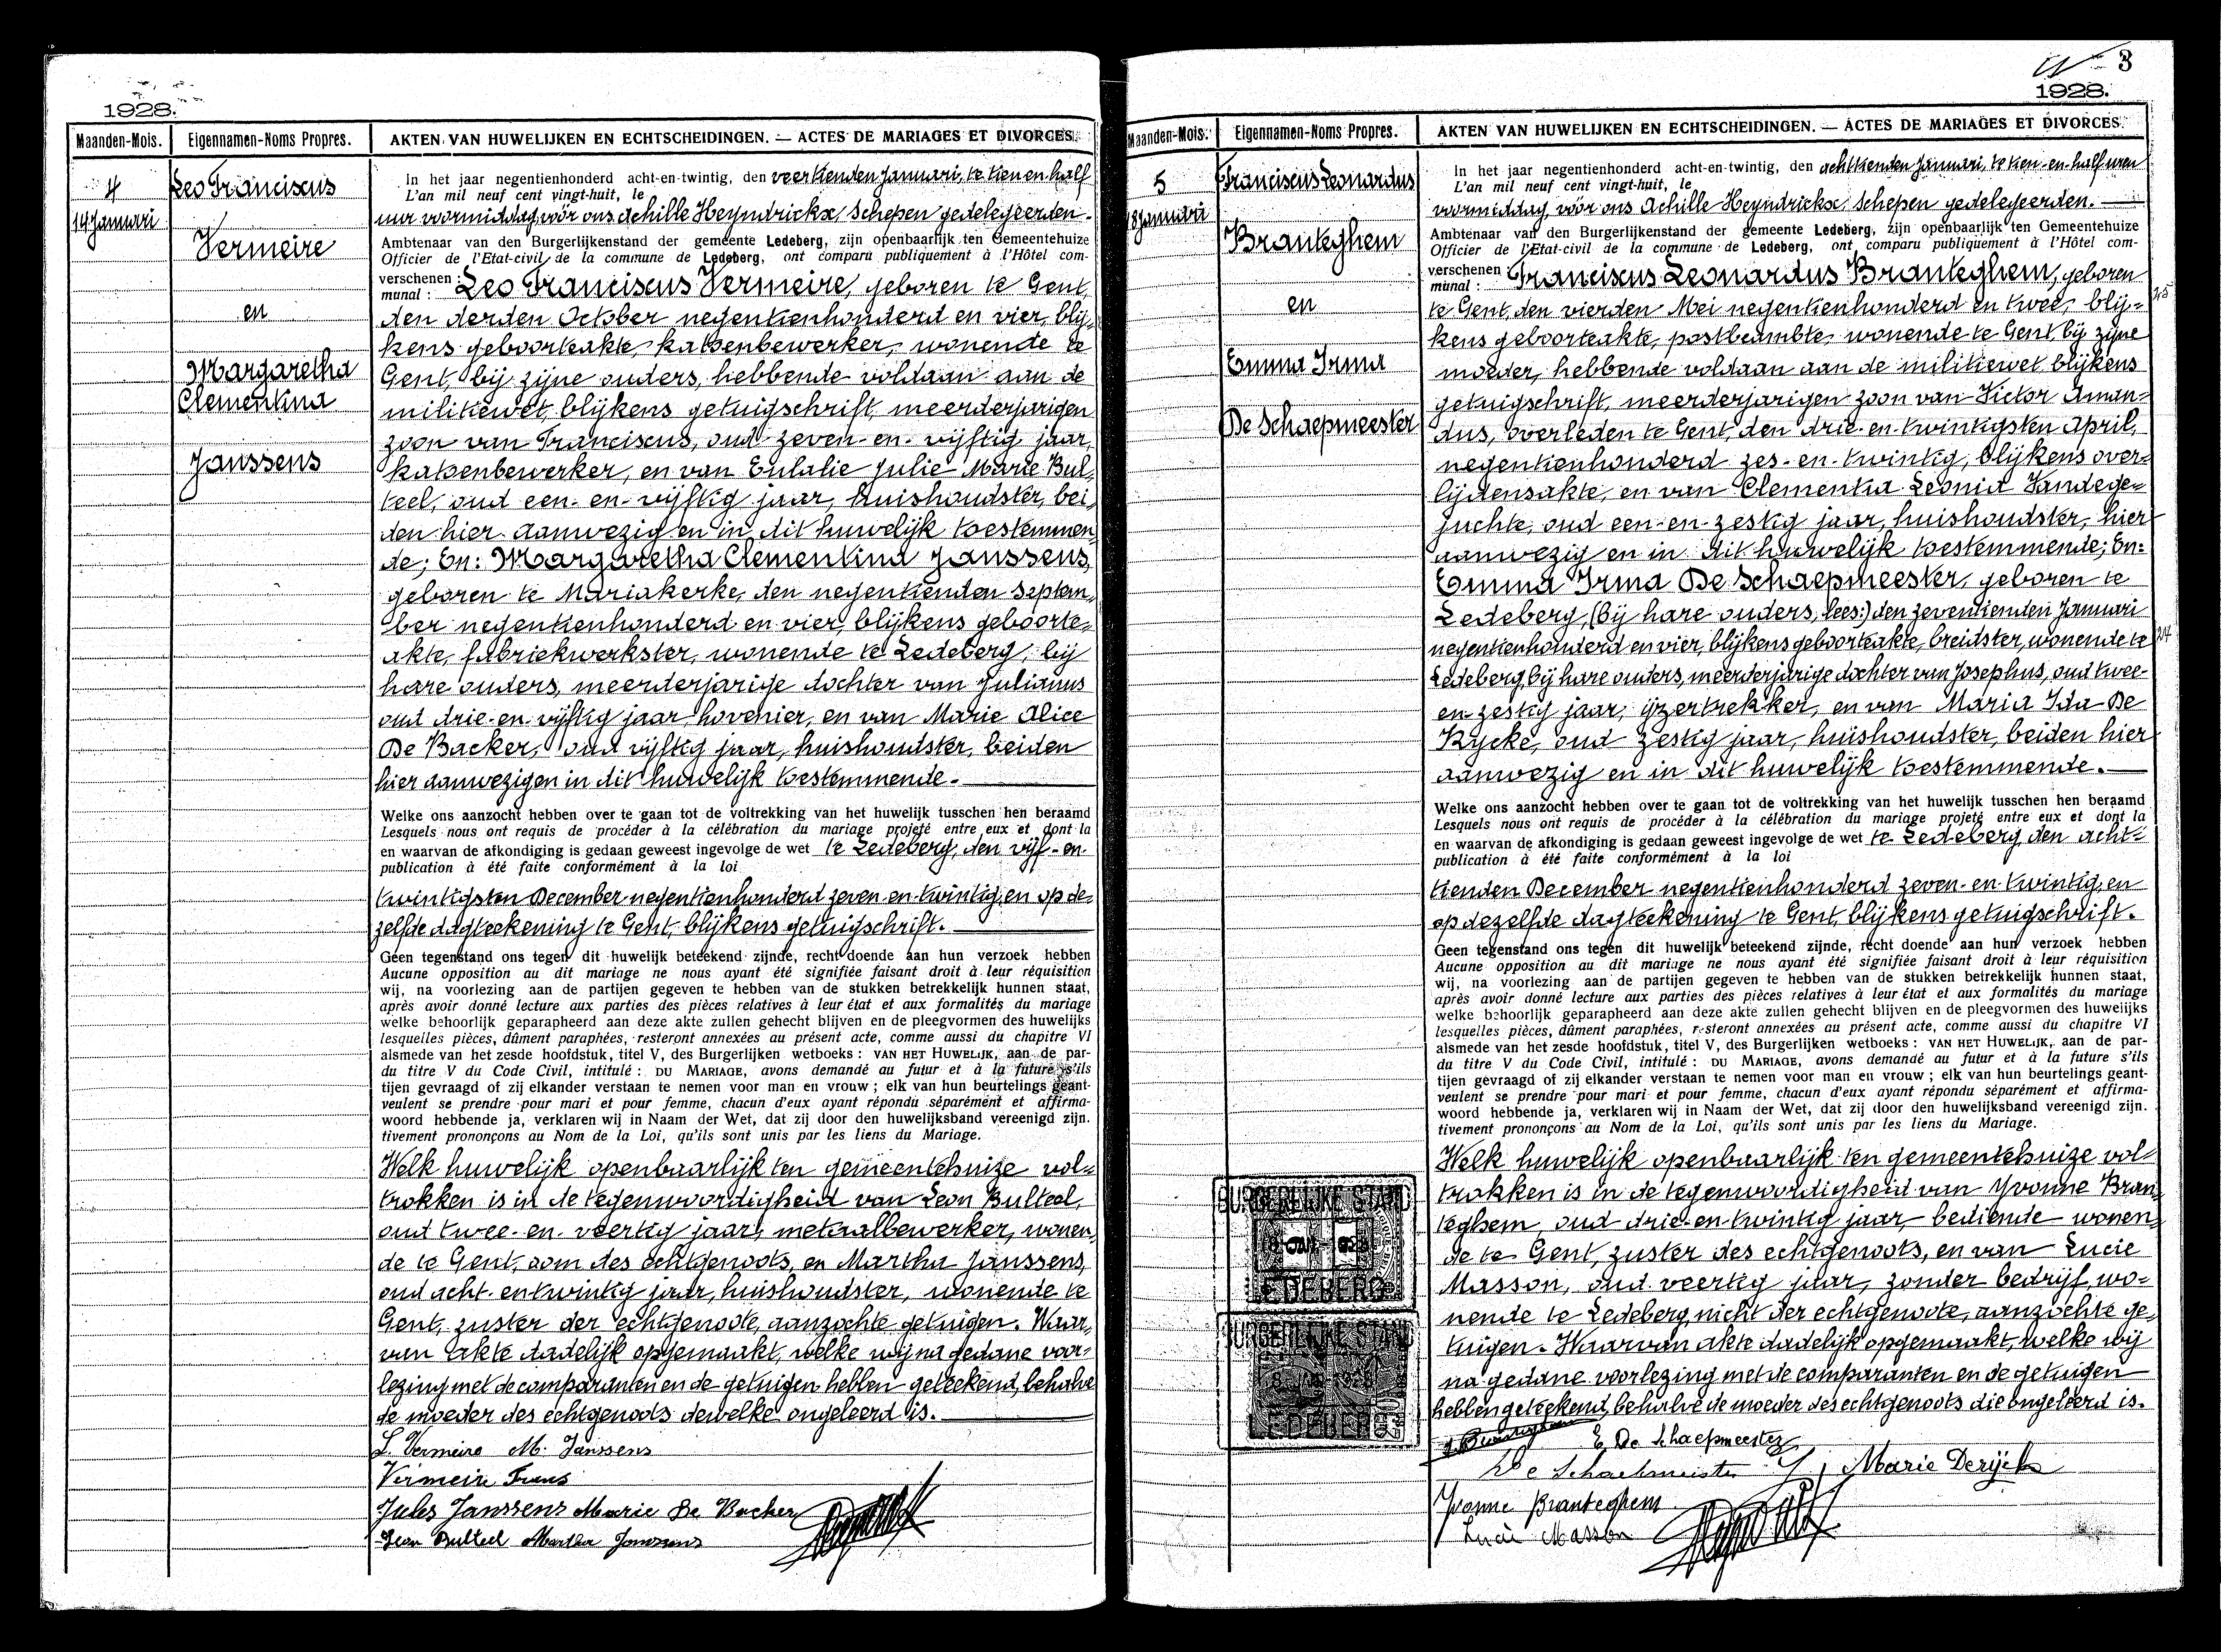 1928.
Maanden-Mois. Eigennamen-Noms Propres. AKTEN VAN HUWELIJKEN EN ECHTSCHEIDINGEN. — ACTES DE MARIAGES ET DIVORCES.
4
14 Januari
Leo Franciscus
Vermeire
en
Margaretha
Clementina
Janssens
In het jaar negentienhonderd acht-en-twintig, den veertienden Januari, te tien en half
L'an mil neuf cent vingt-huit, le
uur voormiddag, vóór ons Achille Heyndrickx, Schepen gedelegeerden.
Ambtenaar van den Burgerlijkenstand der gemeente Ledeberg, zijn openbaarlijk ten Gemeentehuize
Officier de l'Etat-civil de la commune de Ledeberg, ont comparu publiquement à l'Hôtel com-
verschenen : Leo Franciscus Vermeire, geboren te Gent,
munal :
den derden October negentienhonderd en vier, blij-
kens geboorteakte, katoenbewerker, wonende te
Gent, bij zijne ouders, hebbende voldaan aan de
militiewet, blijkens getuigschrift, meerderjarigen
zoon van Franciscus, oud zeven-en-vijftig jaar,
katoenbewerker, en van Eulalie Julie Marie Bul-
teel, oud een-en-vijftig jaar, huishoudster, bei-
den hier aanwezig en in dit huwelijk toestemmen-
de; En: Margaretha Clementina Janssens,
geboren te Mariakerke, den negentienden Septem-
ber negentienhonderd en vier, blijkens geboorte=
akte, fabriekwerkster, wonende te Ledeberg, bij
hare ouders, meerderjarige dochter van Julianus
oud drie-en-vijftig jaar, hovenier, en van Marie Alice
De Backer, oud vijftig jaar, huishoudster, beiden
hier aanwezig en in dit huwelijk toestemmende.
Welke ons aanzocht hebben over te gaan tot de voltrekking van het huwelijk tusschen hen beraamd
Lesquels nous ont requis de procéder à la célébration du mariage projeté entre eux et dont la
en waarvan de afkondiging is gedaan geweest ingevolge de wet te Ledeberg, den vijf-en-
publication a été faite conformément à la loi
twintigsten December negentienhonderd zeven-en-twintig, en op de=
zelfde dagteekening te Gent, blijkens getuigschrift.
Geen tegenstand ons tegen dit huwelijk beteekend zijnde, recht doende aan hun verzoek hebben
Aucune opposition au dit mariage ne nous ayant été signifiée faisant droit à leur réquisition
wij, na voorlezing aan de partijen gegeven te hebben van de stukken betrekkelijk hunnen staat,
après avoir donné lecture aux parties des pièces relatives à leur état et aux formalités du mariage
welke behoorlijk geparapheerd aan deze akte zullen gehecht blijven en de pleegvormen des huwelijks
lesquelles pièces, dûment paraphées, resteront annexées au présent acte, comme aussi du chapitre VI
alsmede van het zesde hoofdstuk, titel V, des Burgerlijken wetboeks : VAN HET HUWELIJK, aan de par-
du titre V du Code Civil, intitulé : DU MARIAGE, avons demandé au futur et à la future s'ils
tijen gevraagd of zij elkander verstaan te nemen voor man en vrouw ; elk van hun beurtelings geant-
veulent se prendre pour mari et pour femme, chacun d'eux ayant répondu séparément et affirma-
woord hebbende ja, verklaren wij in Naam der Wet, dat zij door den huwelijksband vereenigd zijn.
tivement prononçons au Nom de la Loi, qu'ils sont unis par les liens du Mariage.
Welk huwelijk openbaarlijk ten gemeentehuize vol=
trokken is in de tegenwoordigheid van Leon Bulteel,
oud twee-en-veertig jaar, metaalbewerker, wonen-
de te Gent, oom des echtgenoots, en Martha Janssens,
oud acht-en-twintig jaar, huishoudster, wonende te
Gent, zuster der echtgenoote, aanzochte getuigen. Waar-
van akte dadelijk opgemaakt, welke wij na gedane voor-
lezing met de comparanten en de getuigen hebben geteekend, behalve
de moeder des echtgenoots dewelke ongeleerd is.
L. Vermeire M. Janssens
Vermeire Frans
Jules Janssens Marie De Backer
Leon Bulteel Martha Janssens
3
1928.
Maanden-Mois. Eigennamen-Noms Propres. AKTEN VAN HUWELIJKEN EN ECHTSCHEIDINGEN. — ACTES DE MARIAGES ET DIVORCES.
5
18 Januari
Franciscus Leonardus
Branteghem
en
Emma Irma
De Schaepmeester
In het jaar negentienhonderd acht-en-twintig, den achttienden Januari, te tien-en-half uren
L'an mil neuf cent vingt-huit, le
voormiddag, vóór ons Achille Heyndrickx Schepen gedelegeerden.
Ambtenaar van den Burgerlijkenstand der gemeente Ledeberg, zijn openbaarlijk ten Gemeentehuize
Officier de l'Etat-civil de la commune de Ledeberg, ont comparu publiquement à l'Hôtel com-
verschenen : Franciscus Leonardus Branteghem, geboren
munal :
te Gent, den vierden Mei negentienhonderd en twee, blij=
kens geboorteakte, postbeambte, wonende te Gent, bij zijne
moeder, hebbende voldaan aan de militiewet blijkens
getuigschrift, meerderjarigen zoon van Victor Aman=
dus, overleden te Gent, den drie-en-twintigsten April,
negentienhonderd zes-en-twintig, blijkens over=
lijdensakte, en van Clementia Leonia Vandege=
juchte, oud een-en-zestig jaar, huishoudster, hier
aanwezig en in dit huwelijk toestemmende; En:
Emma Irma De Schaepmeester, geboren te
Ledeberg, (bij hare ouders, lees:) den zeventienden Januari
negentienhonderd en vier, blijkens geboorteakte, breidster, wonende te
Ledeberg, bij hare ouders, meerderjarige dochter van Josephus, oud twee-
en-zestig jaar, ijzertrekker, en van Maria Ida De
Rycke, oud zestig jaar, huishoudster, beiden hier
aanwezig en in dit huwelijk toestemmende.
Welke ons aanzocht hebben over te gaan tot de voltrekking van het huwelijk tusschen hen beraamd
Lesquels nous ont requis de procéder à la célébration du mariage projeté entre eux et dont la
en waarvan de afkondiging is gedaan geweest ingevolge de wet te Ledeberg, den acht=
publication a été faite conformément à la loi
tienden December negentienhonderd zeven-en-twintig, en
op dezelfde dagteekening te Gent, blijkens getuigschrift.
Geen tegenstand ons tegen dit huwelijk beteekend zijnde, recht doende aan hun verzoek hebben
Aucune opposition au dit mariage ne nous ayant été signifiée faisant droit à leur réquisition
wij, na voorlezing aan de partijen gegeven te hebben van de stukken betrekkelijk hunnen staat,
après avoir donné lecture aux parties des pièces relatives à leur état et aux formalités du mariage
welke behoorlijk geparapheerd aan deze akte zullen gehecht blijven en de pleegvormen des huwelijks
lesquelles pièces, dûment paraphées, resteront annexées au présent acte, comme aussi du chapitre VI
alsmede van het zesde hoofdstuk, titel V, des Burgerlijken wetboeks : VAN HET HUWELIJK, aan de par-
du titre V du Code Civil, intitulé : DU MARIAGE, avons demandé au futur et à la future s'ils
tijen gevraagd of zij elkander verstaan te nemen voor man en vrouw ; elk van hun beurtelings geant-
veulent se prendre pour mari et pour femme, chacun d'eux ayant répondu séparément et affirma-
woord hebbende ja, verklaren wij in Naam der Wet, dat zij door den huwelijksband vereenigd zijn.
tivement prononçons au Nom de la Loi, qu'ils sont unis par les liens du Mariage.
Welk huwelijk openbaarlijk ten gemeentehuize vol=
trokken is in de tegenwoordigheid van Yvonne Bran=
teghem, oud drie-en-twintig jaar, bediende wonen=
de te Gent, zuster des echtgenoots, en van Lucie
Masson, oud veertig jaar, zonder bedrijf, wo=
nende te Ledeberg, nicht der echtgenoote, aanzochte ge=
tuigen. Waarvan akte dadelijk opgemaakt, welke wij
na gedane voorlezing met de comparanten en de getuigen
hebben geteekend, behalve de moeder des echtgenoots die ongeleerd is.
E De Schaepmeester
De Schaepmeester J, Marie Derijcke
Yvonne Branteghem
Lucie Masson
BURGERLIJKE STAND
LEDEBERG
BURGERLIJKE STAND
LEDEBERG